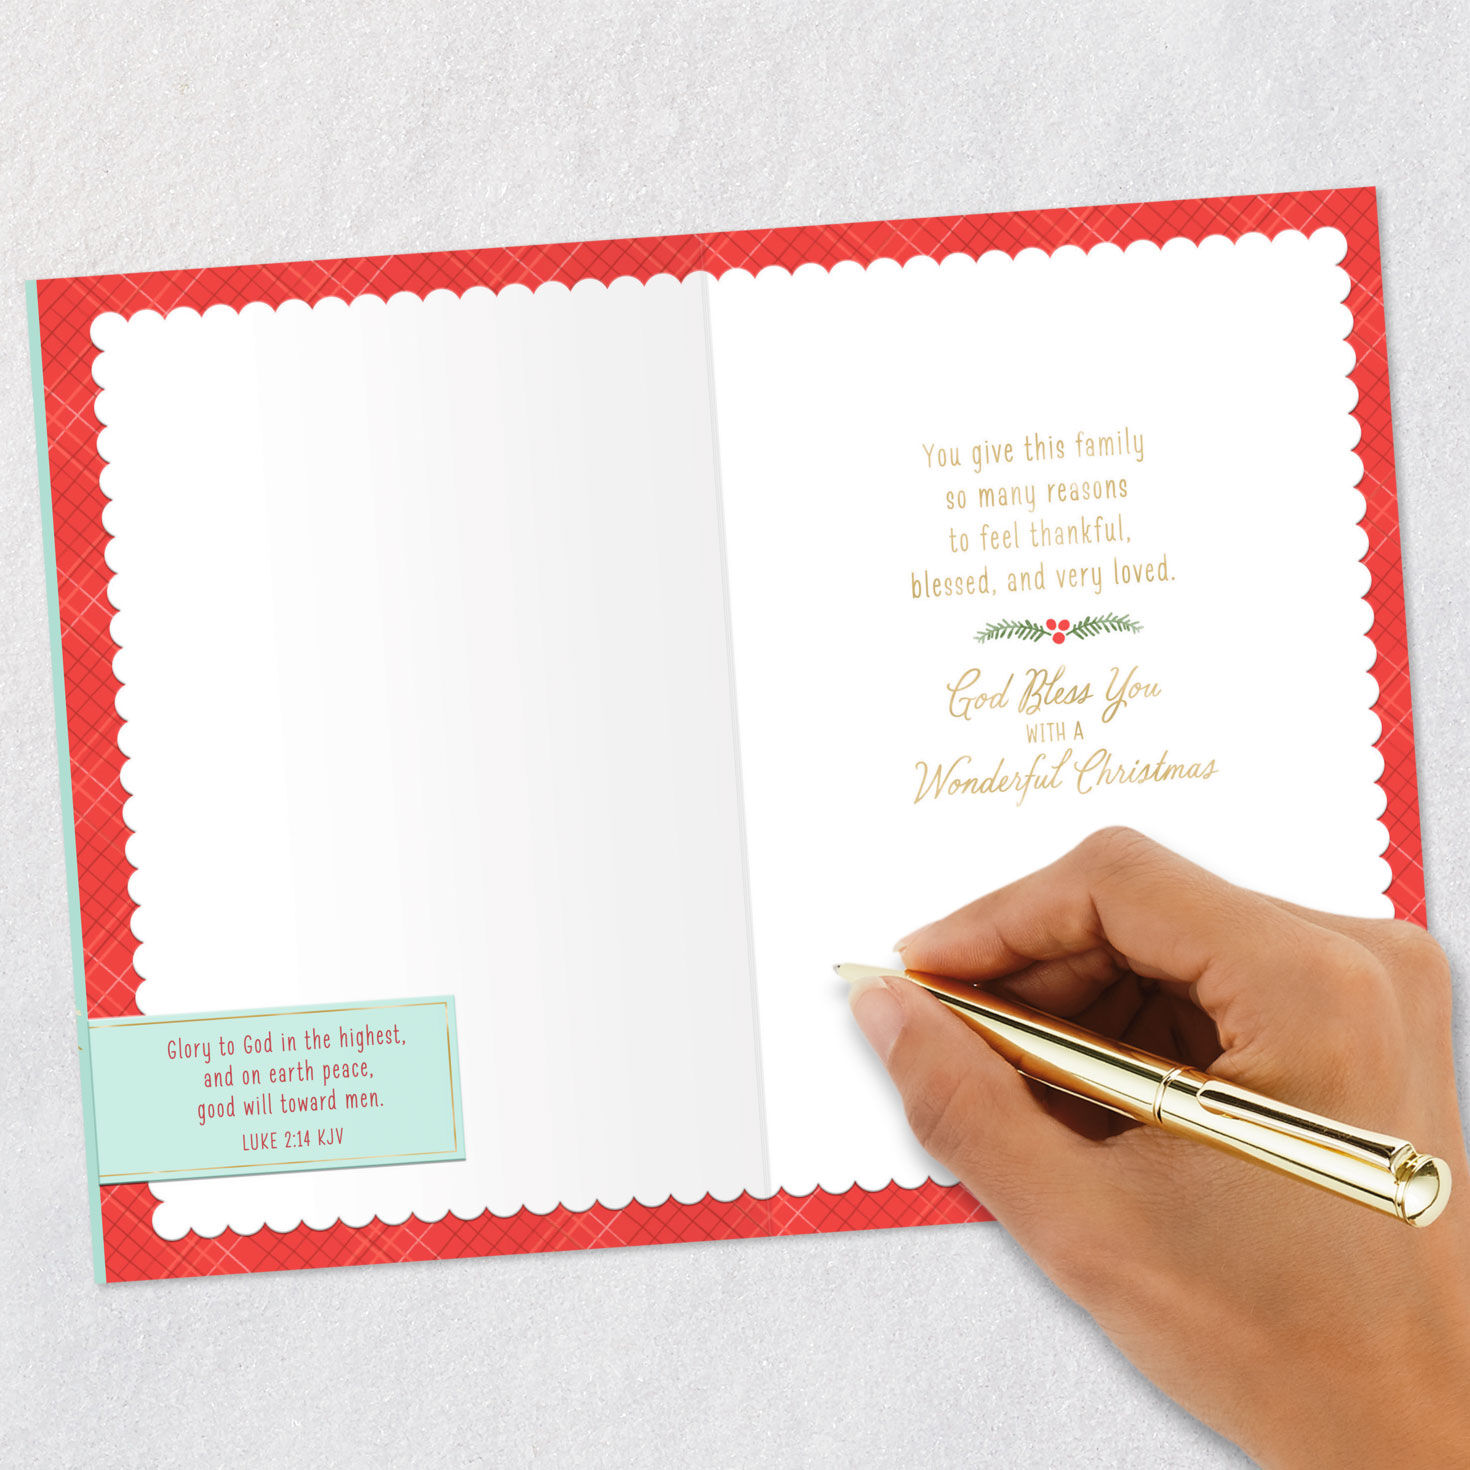 Glory to God in the highest,
and on earth peace,
good will toward men.
LUKE 2:14 KJV
You give this family
so many reasons
to feel thankful,
blessed, and very loved.
God Bless You
WITH A
Wonderful Christmas